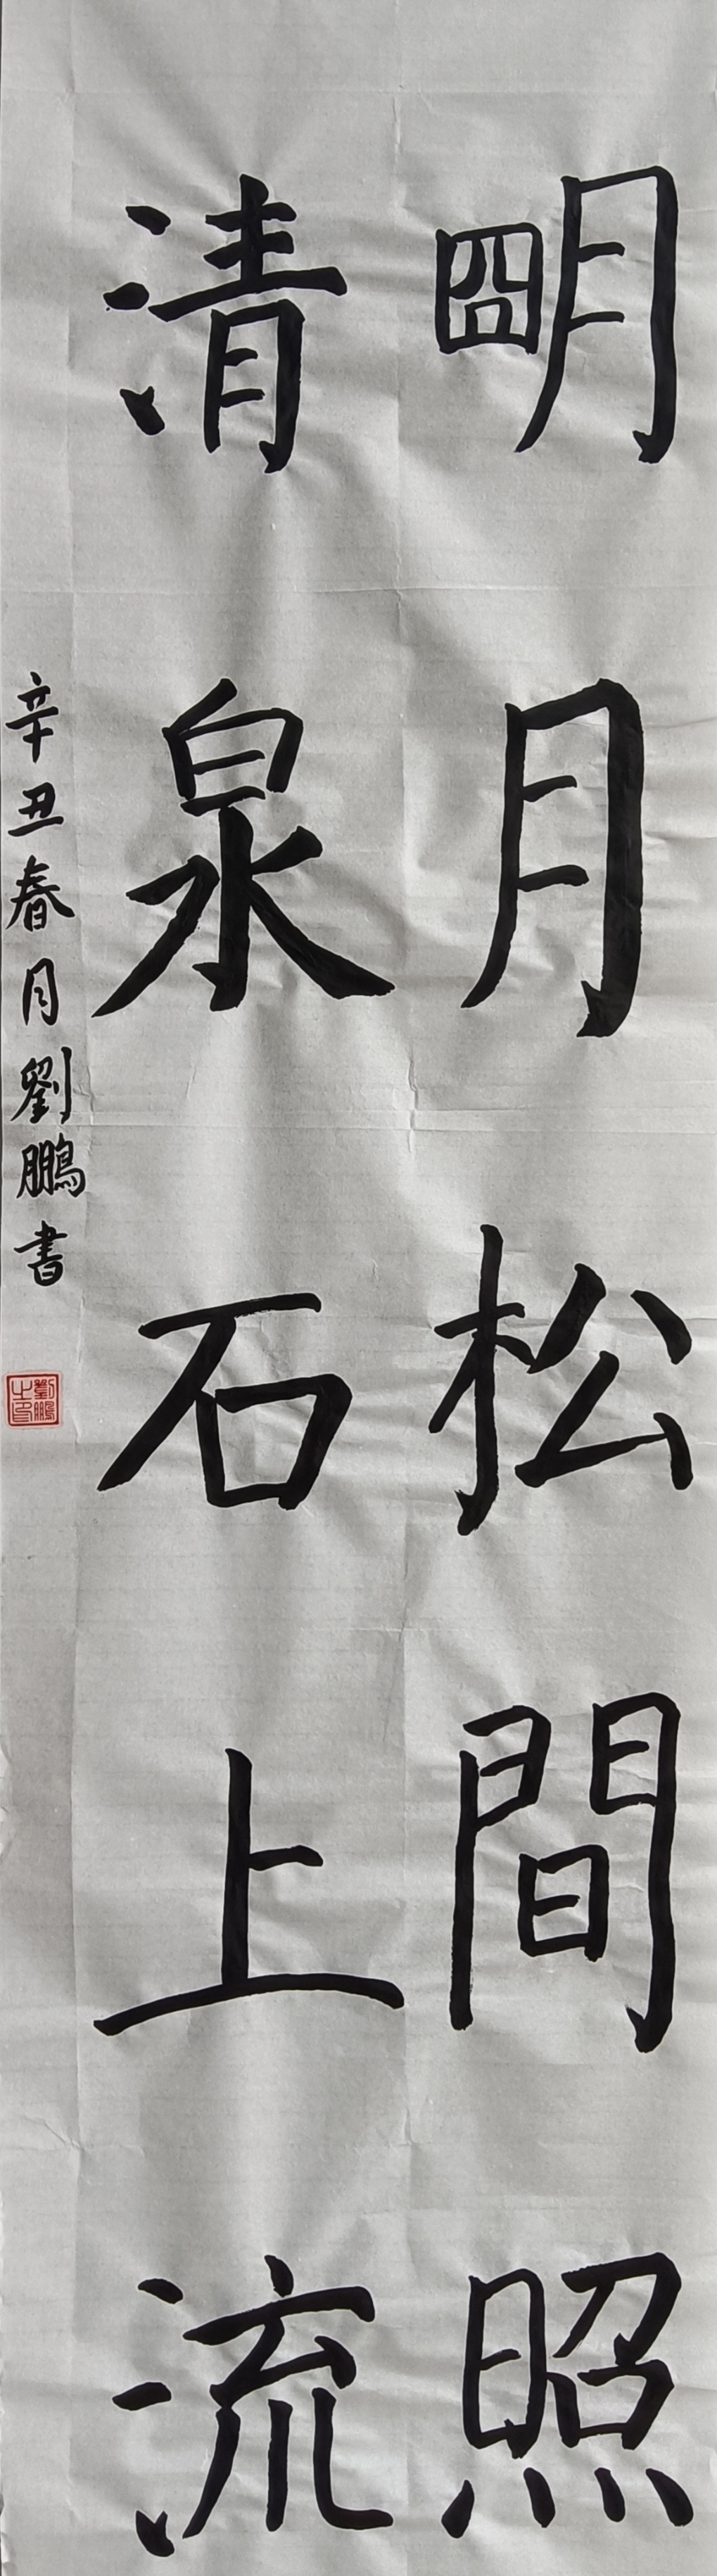 朙月松間照
清泉石上流
辛丑春月劉鵬書
劉鵬之印